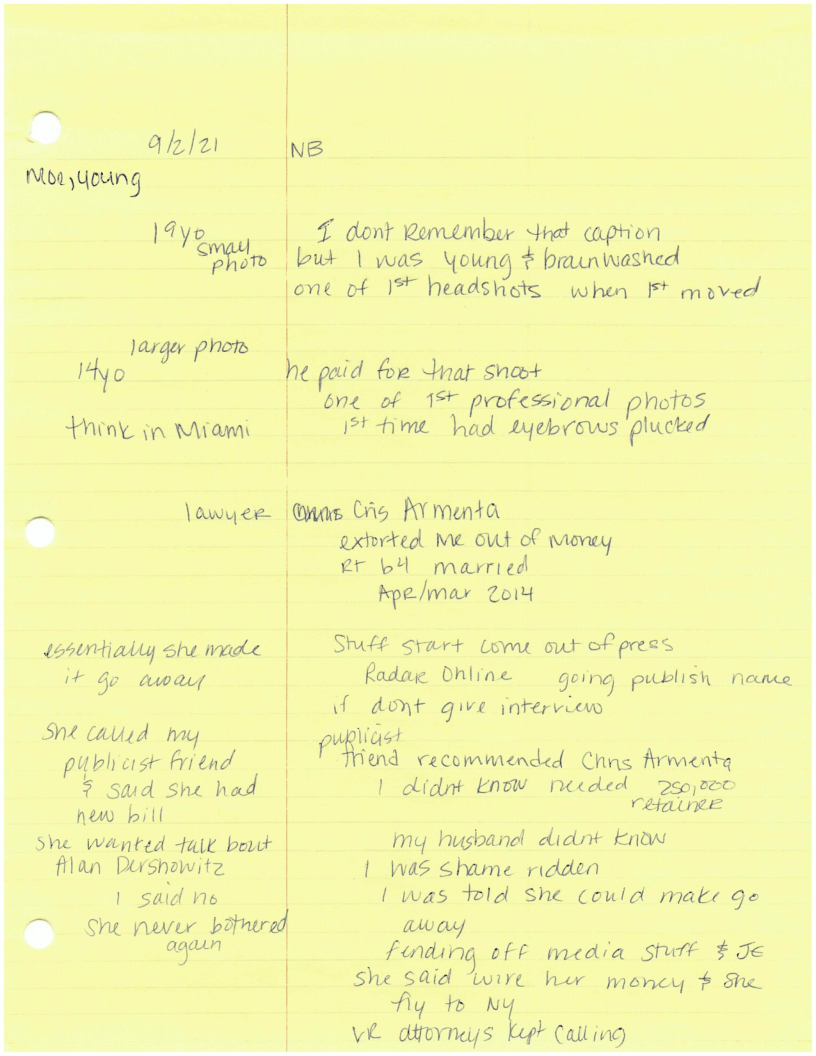 9/2/21 NB
Moe, young
19yo small photo
I dont Remember that caption
but I was young & brainwashed
one of 1st headshots when 1st moved
larger photo
14yo
he paid foR that shoot
one of 1st professional photos
think in Miami
1st time had eyebrows plucked
lawyeR Cris Armenta
extorted me out of money
Rt b4 married
ApR/mar 2014
essentially she made
it go away
Stuff start come out of press
Radar Online going publish name
if dont give interview
She called my
publicist friend
& said she had
new bill
publicist
friend recommended Chris Armenta
I didnt know needed 250,000
retaineR
She wanted talk bout
Alan Dershowitz
I said no
She never bothered
again
my husband didnt know
I was shame ridden
I was told she could make go
away
fending off media stuff & JE
she said wire her money & she
fly to NY
VR attorneys kept calling